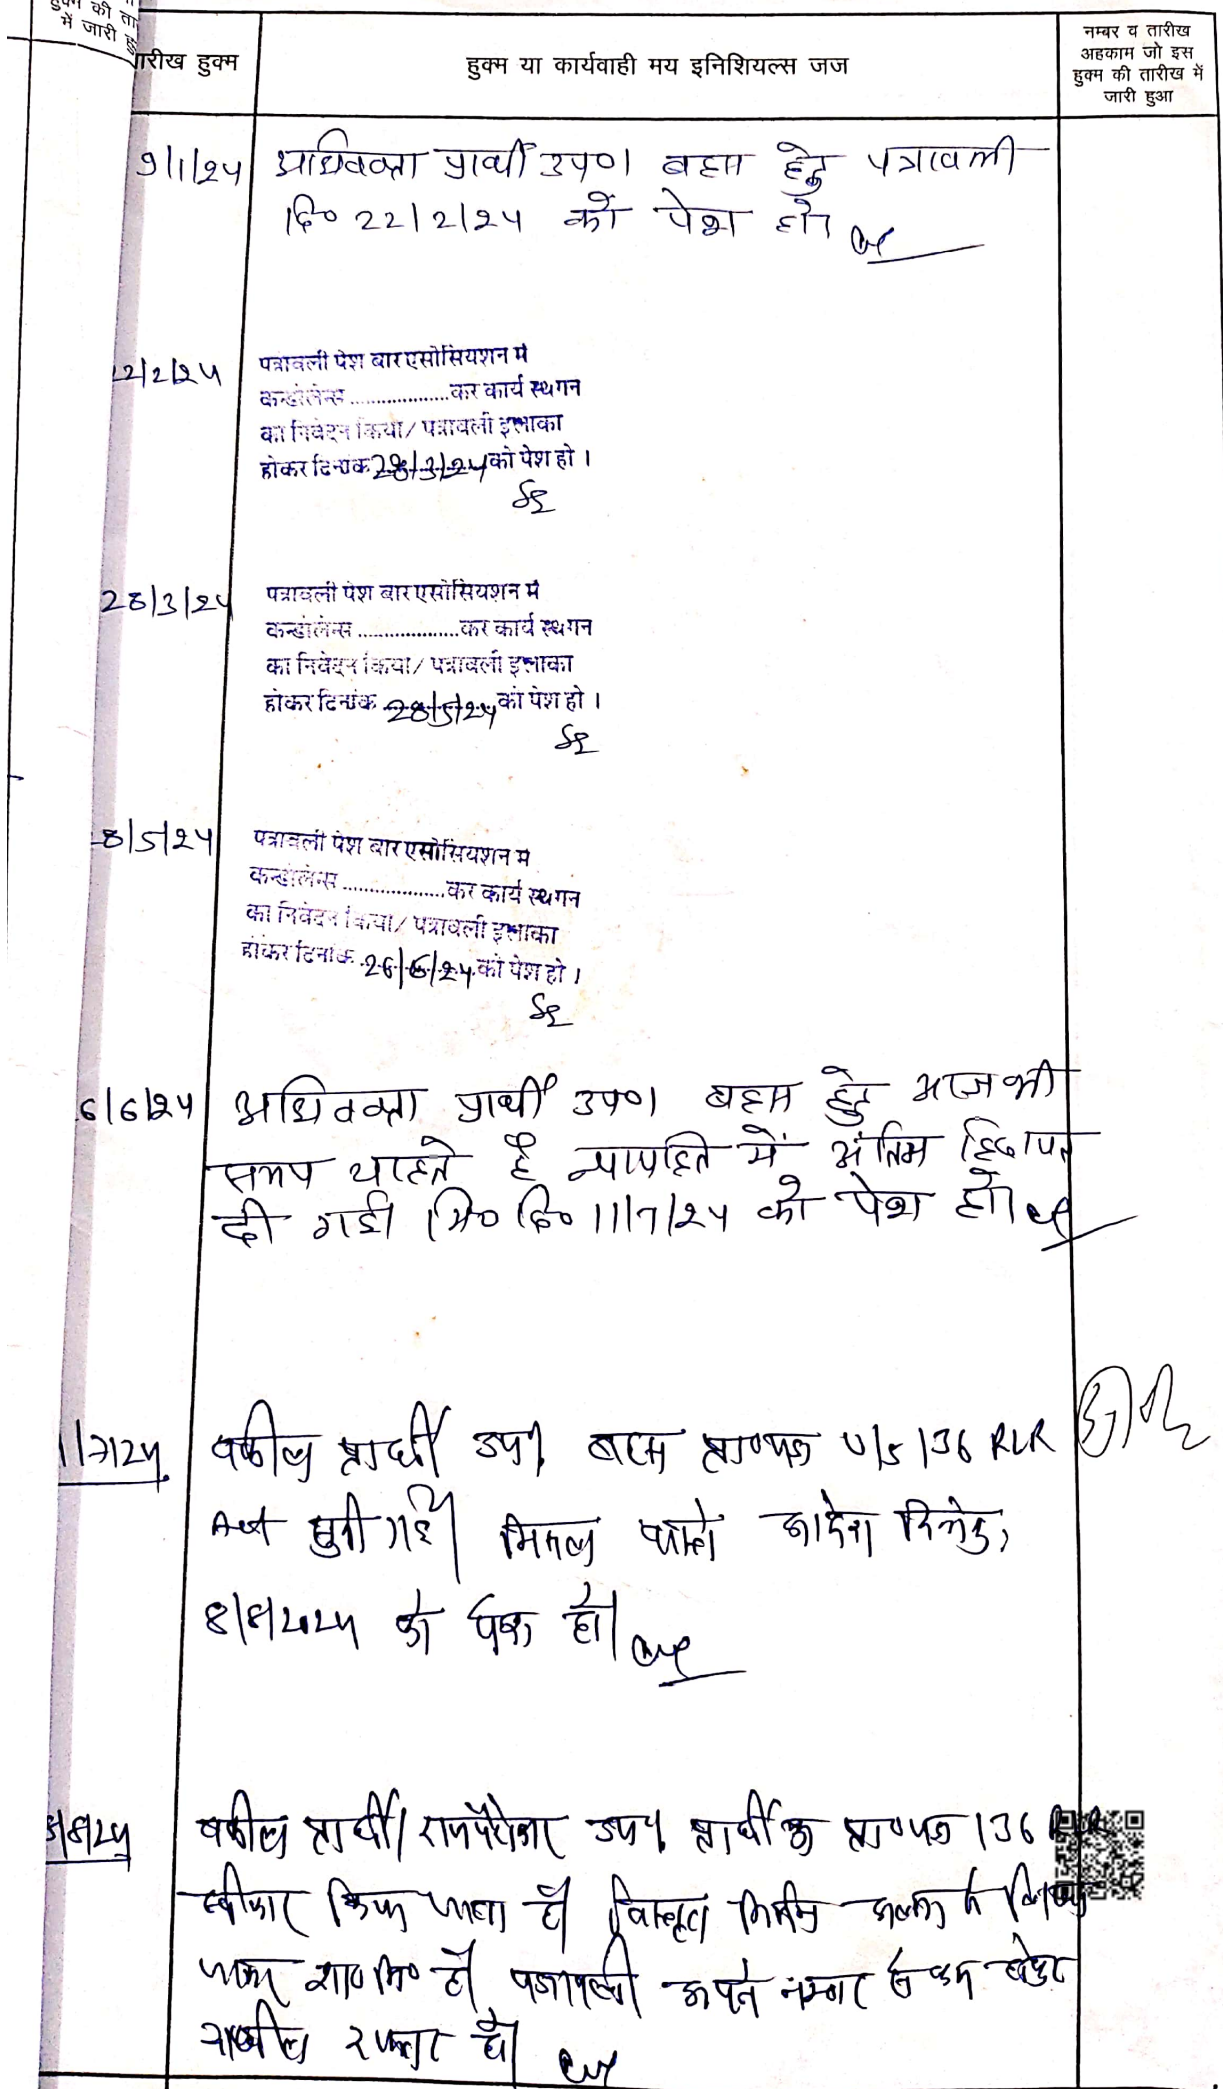 हुक्म की ता
में जारी हु
तारीख हुक्म
हुक्म या कार्यवाही मय इनिशियल्स जज
नम्बर व तारीख
अहकाम जो इस
हुक्म की तारीख में
जारी हुआ
9/1/24 अधिवक्ता प्रार्थी उप0। बहस हेतु पत्रावली
दि० 22/2/24 को पेश हो।
22/2/24 पत्रावली पेश बार एसोसियशन में
कन्डोलेन्स ................... कर कार्य स्थगन
का निवेदन किया/ पत्रावली इलाका
होकर दिनांक 28/3/24 को पेश हो ।
28/3/24 पत्रावली पेश बार एसोसियशन में
कन्डोलेन्स ................... कर कार्य स्थगन
का निवेदन किया/ पत्रावली इलाका
होकर दिनांक 28/5/24 को पेश हो ।
8/5/24 पत्रावली पेश बार एसोसियशन में
कन्डोलेन्स ................... कर कार्य स्थगन
का निवेदन किया/ पत्रावली इलाका
होकर दिनांक 26/6/24 को पेश हो ।
6/6/24 अधिवक्ता प्रार्थी उप0। बहस हेतु आज भी
समय चाहते है न्यायहित में अंतिम हिदायत
दी गई। मि० दि० 11/7/24 को पेश हो।
11/7/24 वकील प्रार्थी उप। बहस प्रा०पत्र U/S 136 RLR
Act सुनी गई। मिसल वास्ते आदेश दिनांक
8/8/2024 को पेश हो।
8/8/24 वकील प्रार्थी/ उप। प्रार्थी का प्रा०पत्र 136
स्वीकार किया जाता है। विस्तृत निर्णय अलग से
जाकर शा०मि० है। पत्रावली अपने नम्बर से कम होकर
दाखिल दफ्तर हो।